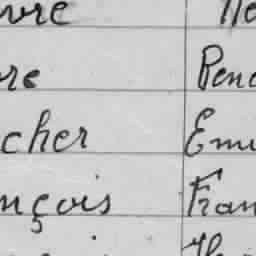 vre
re Rene
cher Emi
nçois Fran